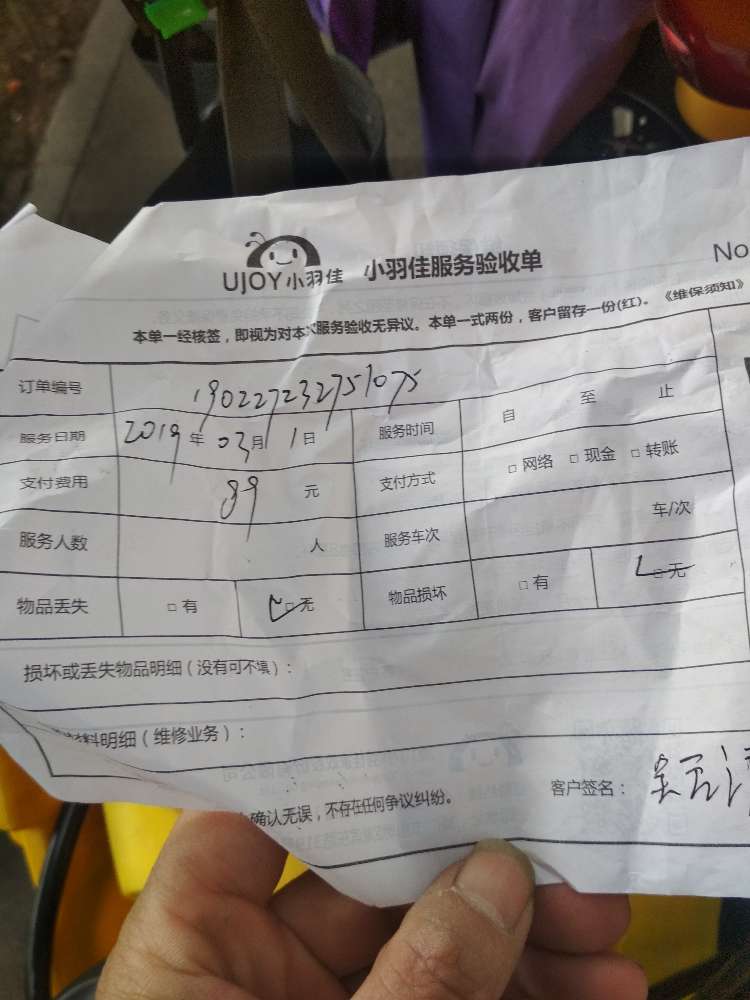 UJOY小羽佳 小羽佳服务验收单 No
本单一经核签，即视为对本次服务验收无异议。本单一式两份，客户留存一份(红)。《维保须知》
订单编号 190227232751075
服务日期 2019年03月1日 服务时间 自 至 止
支付费用 89元 支付方式 □网络 □现金 □转账
服务人数 人 服务车次 车/次
物品丢失 □有 □无 物品损坏 □有 □无
损坏或丢失物品明细（没有可不填）：
材料明细（维修业务）：
确认无误，不存在任何争议纠纷。 客户签名：